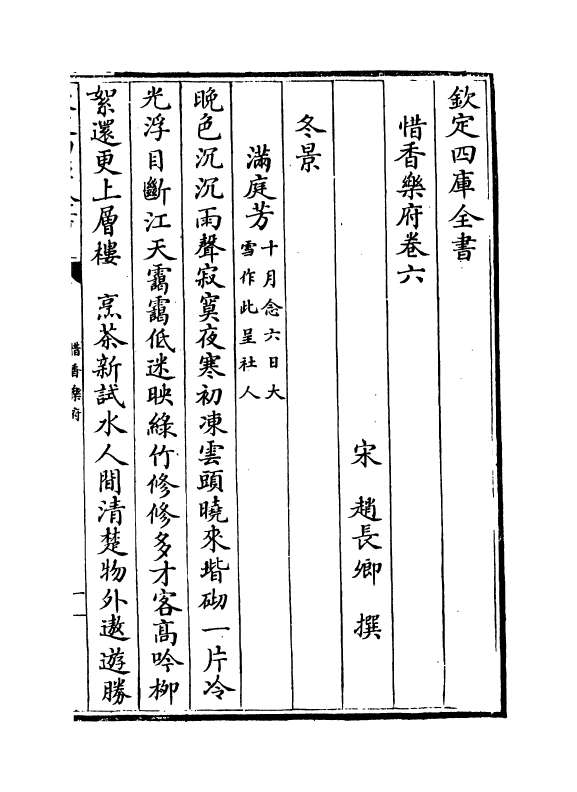 欽定四庫全書
惜香樂府卷六
宋 趙長卿 撰
冬景
滿庭芳十月念六日大
雪作此呈社人
晩色沉沉雨聲寂寞夜寒初凍雲頭曉來堦砌一片冷
光浮目斷江天靄靄低迷映綠竹修修多才客高吟柳
絮還更上層樓 烹茶新試水人間清楚物外遨遊勝
惜香樂府
一